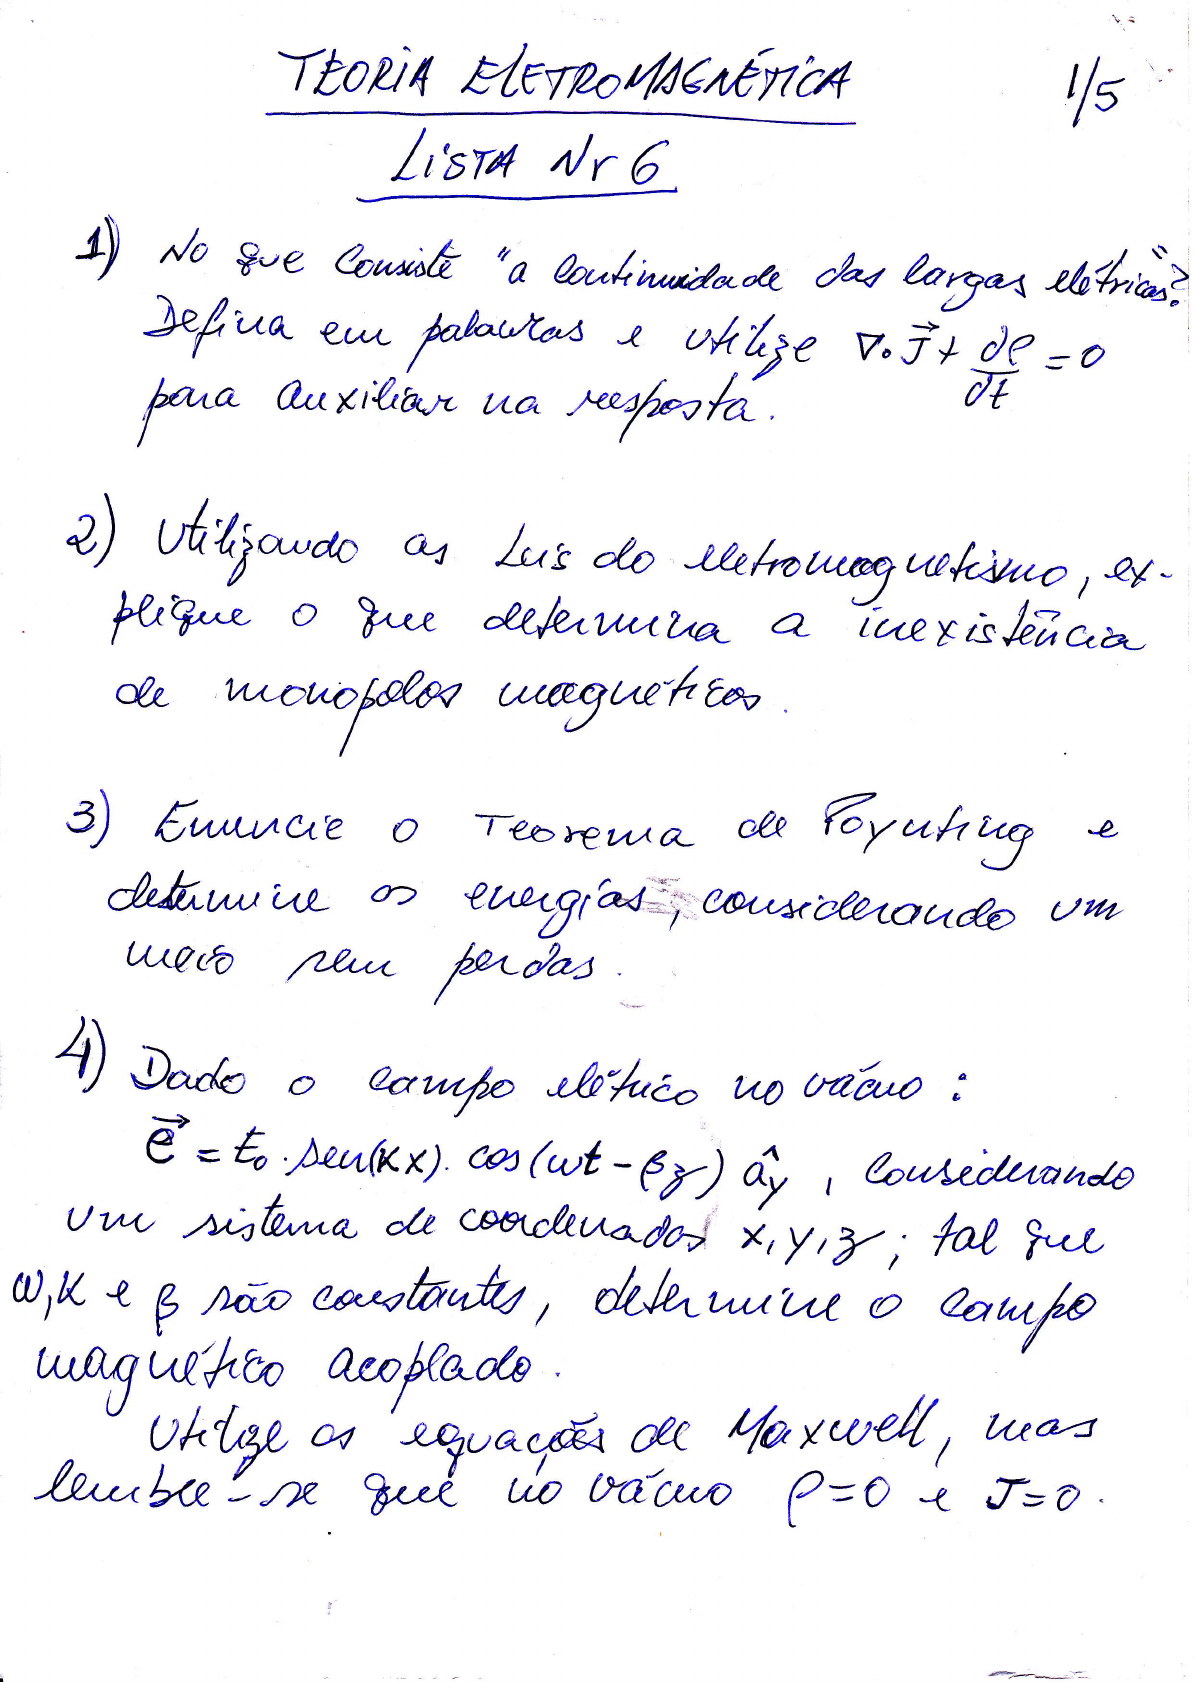 TEORIA ELETROMAGNÉTICA
1/5
LISTA Nr 6
1) No que consiste "a continuidade das cargas elétricas"?
Defina em palavras e utilize ∇·J⃗ + dρ/dt = 0
para auxiliar na resposta.
2) Utilizando as Leis do eletromagnetismo, ex-
plique o que determina a inexistência
de monopolos magnéticos.
3) Enuncie o Teorema de Poynting e
determine as energias, considerando um
meio sem perdas.
4) Dado o campo elétrico no vácuo:
e⃗ = E₀·sen(Kx)·cos(ωt - βz) â_y, considerando
um sistema de coordenadas x, y, z; tal que
ω, K e β são constantes, determine o campo
magnético acoplado.
Utilize as equações de Maxwell, mas
lembre-se que no vácuo ρ=0 e J=0.